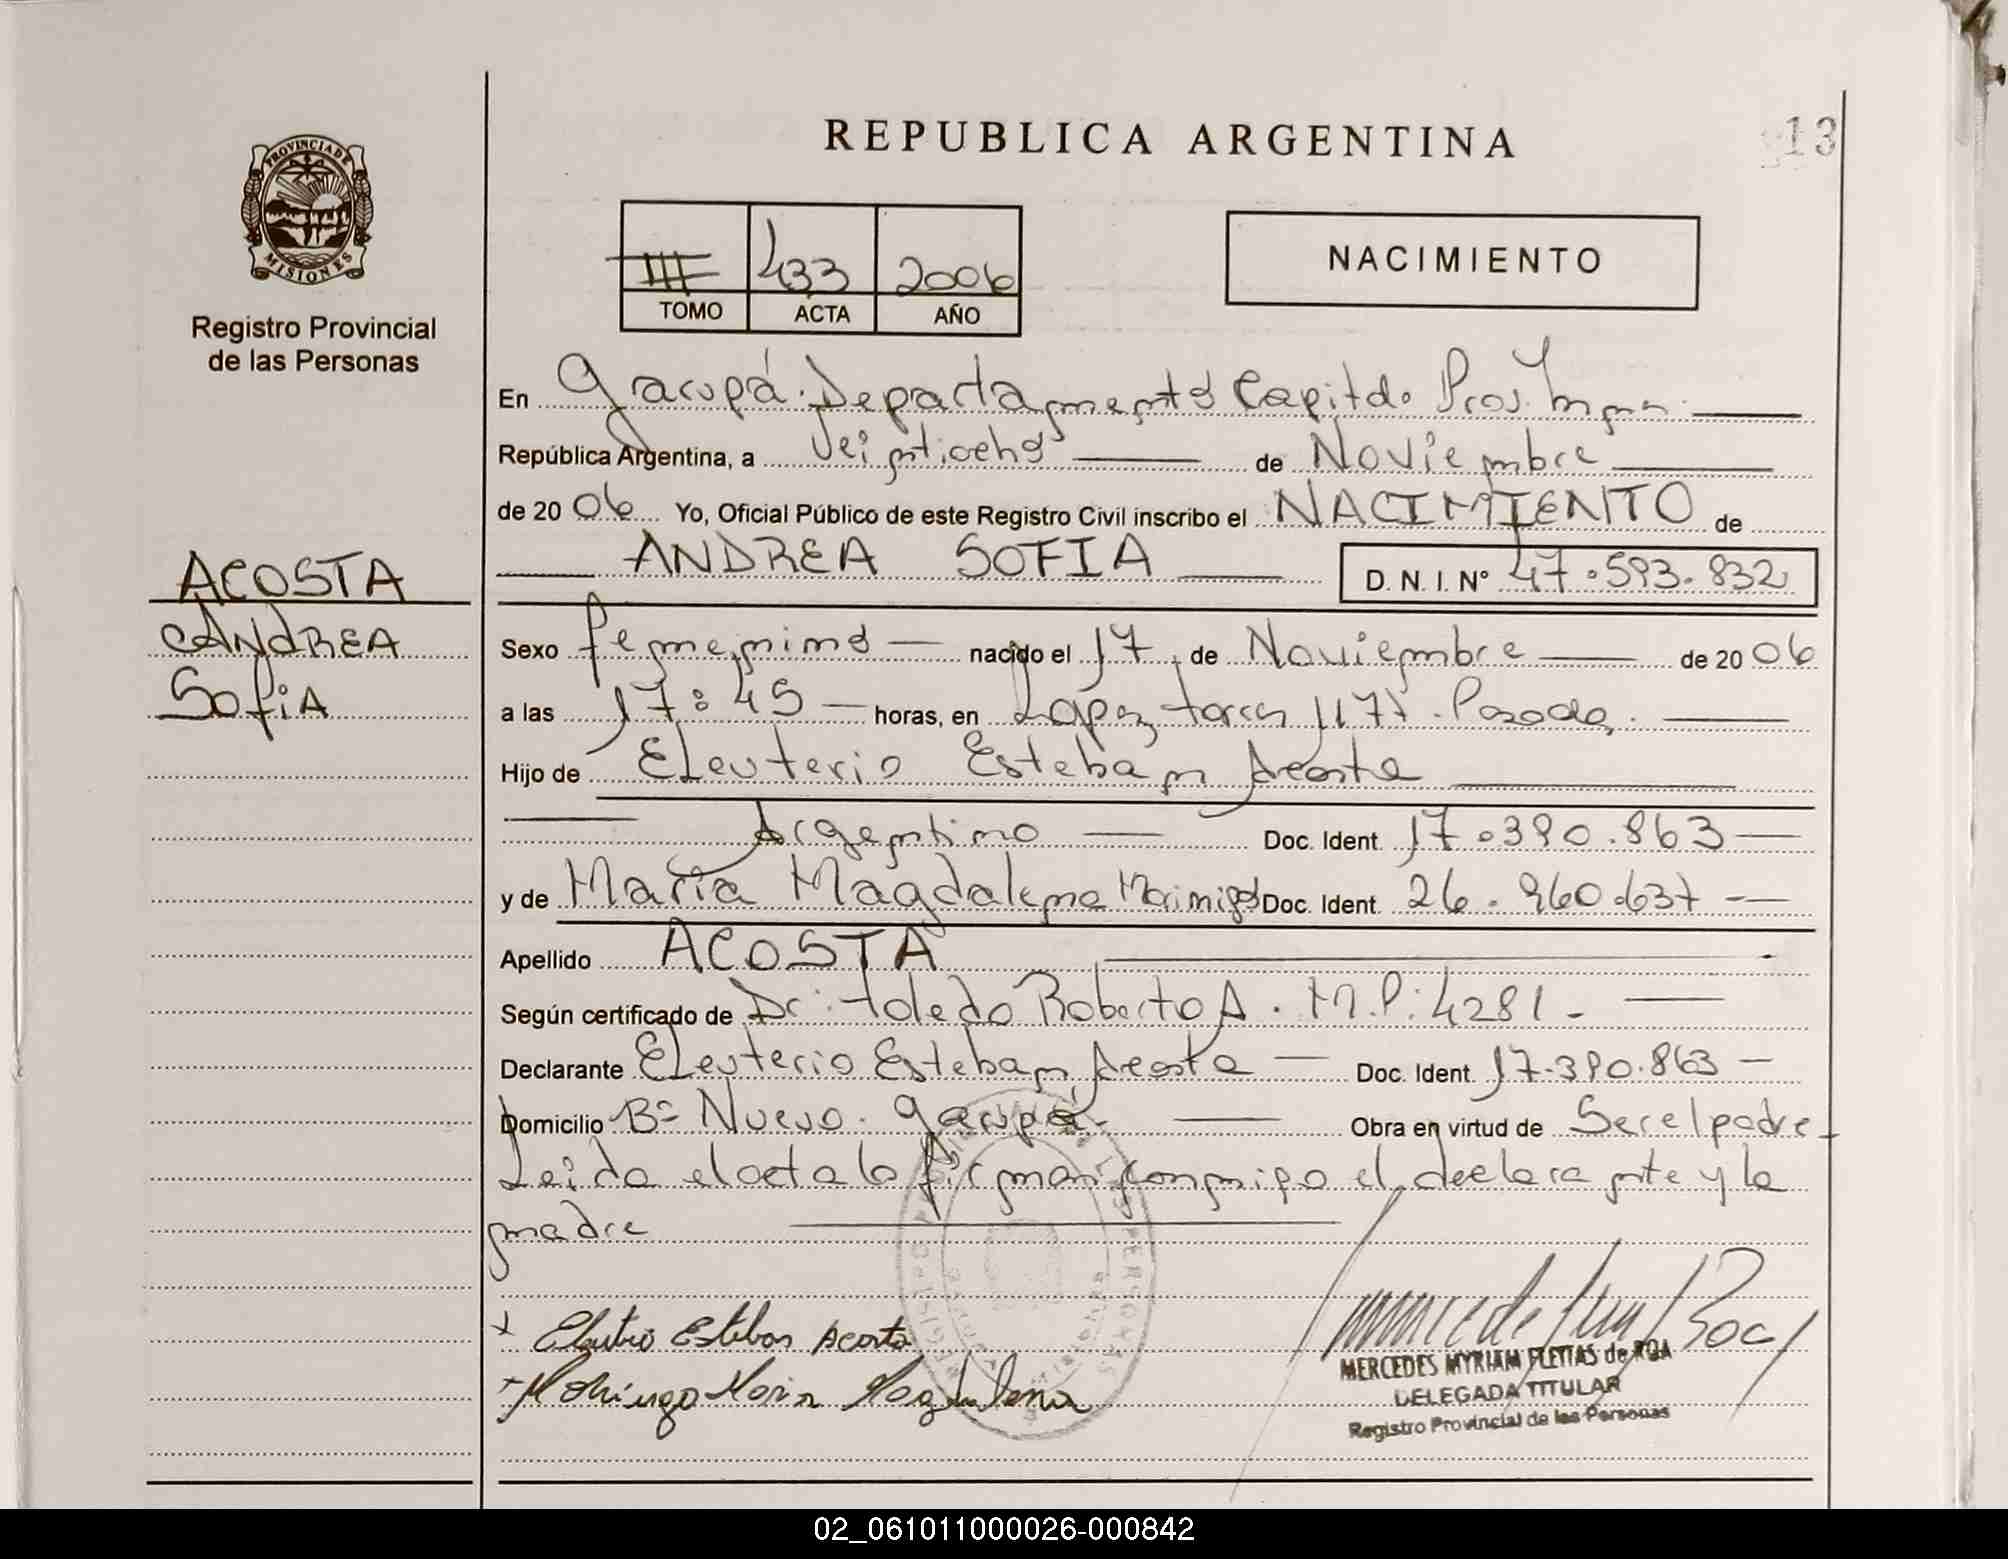 REPUBLICA ARGENTINA
13
PROVINCIA DE
MISIONES
Registro Provincial
de las Personas
III 433 2006
TOMO ACTA AÑO
NACIMIENTO
En Garupá. Departamento Capital. Prov. Mnes.
República Argentina, a Veintiocho de Noviembre
de 20 06 Yo, Oficial Público de este Registro Civil inscribo el NACIMIENTO de
ANDREA SOFIA D. N. I. Nº 47.593.832
ACOSTA
ANDREA
SofiA
Sexo femenino nacido el 17 de Noviembre de 20 06
a las 17:45 horas, en Lopez torres Posadas.
Hijo de Eleuterio Esteban Acosta
Argentino Doc. Ident. 17.390.863
y de María Magdalena Doc. Ident. 26.960.637
Apellido ACOSTA
Según certificado de Dr: Toledo Roberto A. M.P: 4281.
Declarante Eleuterio Esteban Acosta Doc. Ident. 17.390.863
Domicilio Bº Nuevo. Garupá. Obra en virtud de Ser el padre
Leida el acta la firman conmigo el declarante y la
madre
x Eleuterio Esteban Acosta
Maria Magdalena
MERCEDES MYRIAM FLEITAS de ROA
DELEGADA TITULAR
Registro Provincial de las Personas
02_061011000026-000842